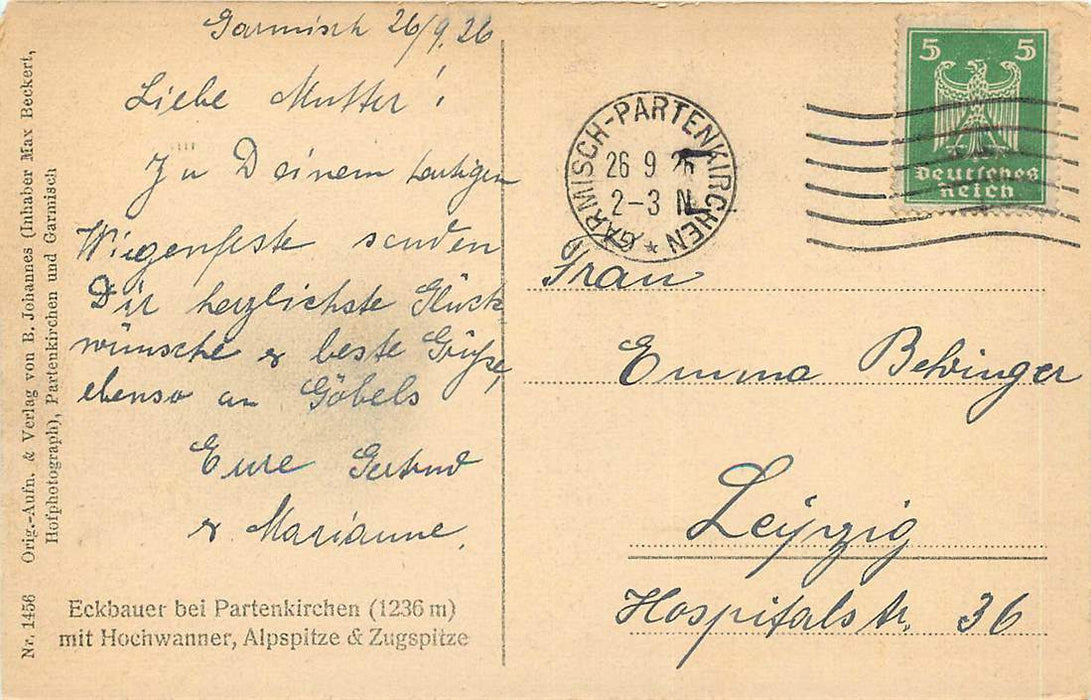 Garmisch 26/9.26
Liebe Mutter!
Zu Deinem heutigen
Wiegenfeste senden
Dir herzlichste Glück
wünsche & beste Grüße,
ebenso an Göbels
Eure Gertrud
& Marianne.
Eckbauer bei Partenkirchen (1236 m)
mit Hochwanner, Alpspitze & Zugspitze
Nr. 1456 Orig.-Aufn. & Verlag von B. Johannes (Inhaber Max Beckert,
Hofphotograph), Partenkirchen und Garmisch
GARMISCH-PARTENKIRCHEN
26 9 26
2-3 N
5 5
Deutsches
Reich
Frau
Emma Behringer
Leipzig
Hospitalstr. 36